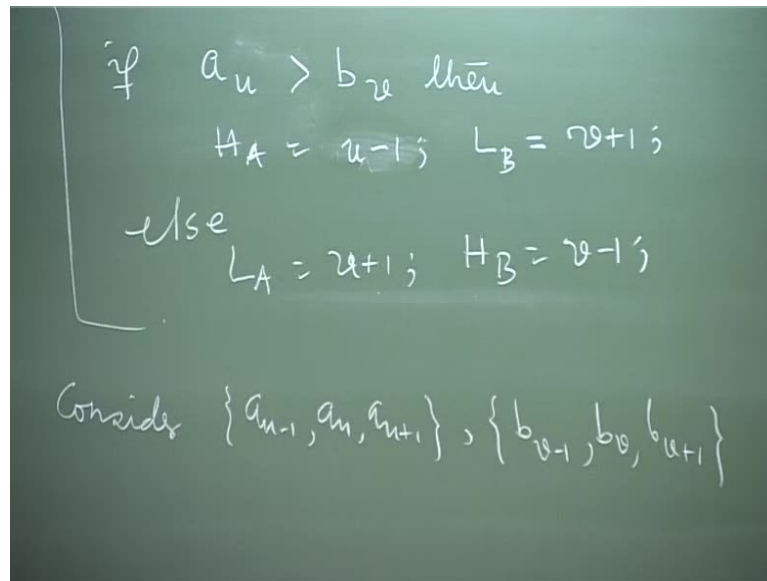 if a_u > b_v then
H_A = u-1; L_B = v+1;
else
L_A = u+1; H_B = v-1;
Consider {a_{u-1}, a_u, a_{u+1}}, {b_{v-1}, b_v, b_{v+1}}